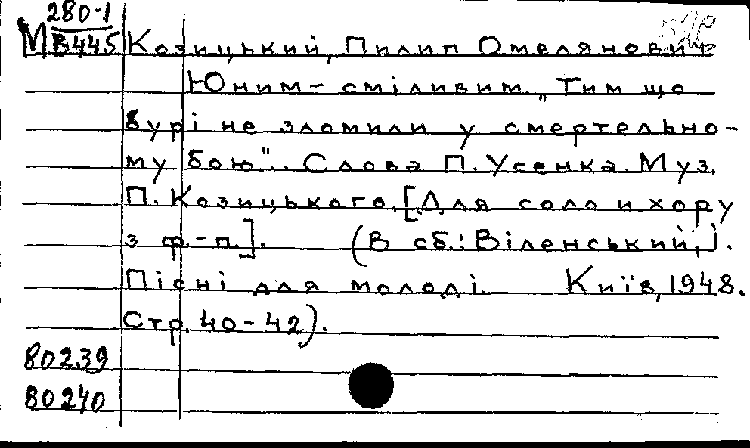 280-1
М В445 Козицький, Пилип Омелянович
Юним – сміливим. „Тим що
бурі не зломили у смертельно-
му бою". Слова П. Усенка. Муз.
П. Козицького. [Для соло и хору
з ф.-п.]. (В сб.: Віленський, І.
Пісні для молоді. Київ, 1948.
Стр. 40-42).
80239
80240